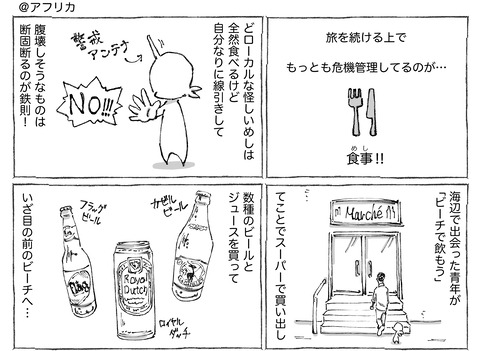 @アフリカ
旅を続ける上で
もっとも危機管理してるのが…
食事!!
めし
どローカルな怪しいめしは
全然食べるけど
自分なりに線引きして
警戒
アンテナ
NO!!!
腹壊しそうなものは
断固断るのが鉄則！
海辺で出会った青年が
「ビーチで飲もう」
てことでスーパーで買い出し
Marché
数種のビールと
ジュースを買って
カゼル
ビール
フラッグ
ビール
Flag
Royal
Dutch
ロイヤル
ダッチ
いざ目の前のビーチへ…